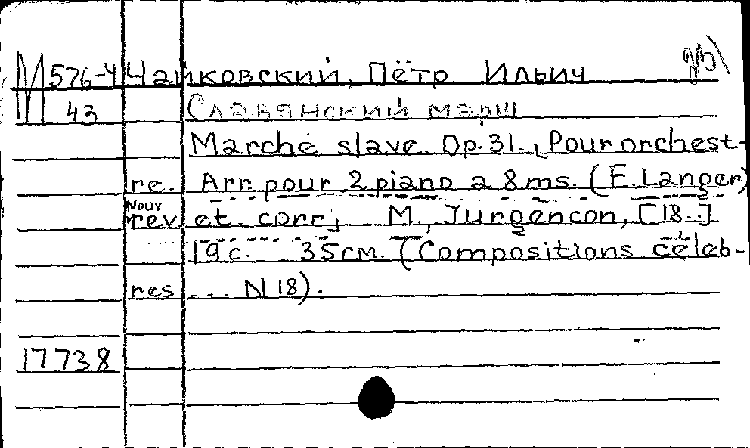 М 576-4 Чайковский, Пётр Ильич
43 Славянский марш
Marche slave. Op. 31., Pour orchest-
re. Arr. pour 2 piano a 8 ms. (E. Langer)
Nouv rev. et. corr; M., Jurgencon, [18..]
19 c. 35 см. (Compositions céleb-
res ... N 18).
17738